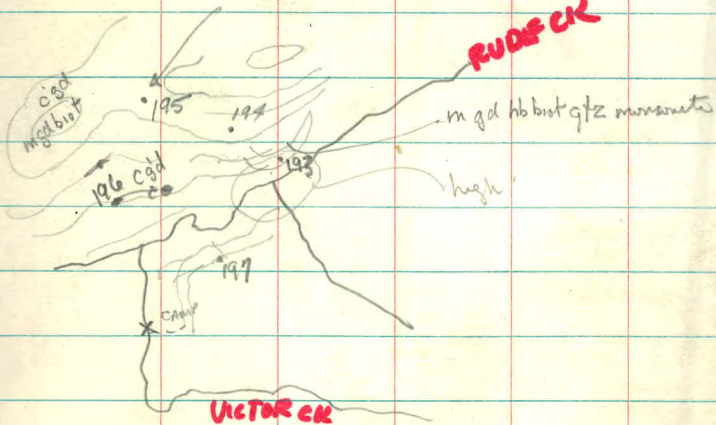 RUDE CK
cgd
mgdbiot
195
194
m gd hb biot qtz monzonite
193
196 cgd
high
197
CAMP
VICTOR CK